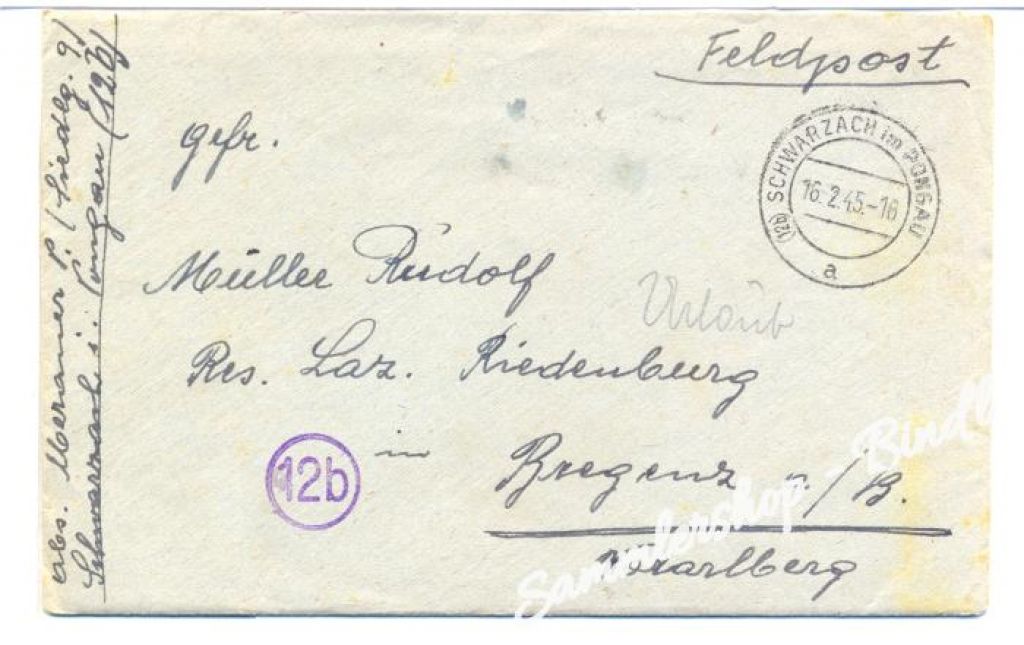 Feldpost
(12b) SCHWARZACH im PONGAU
16.2.45.-16
a
gefr.
Müller Rudolf
Urlaub
Res. Laz. Riedenburg
12b
in
Bregenz a/B.
Vorarlberg
abs. Meranier P. (Siedlg. 9)
Schwarzach i. Pongau (12b)
Sammlershop - Bindl